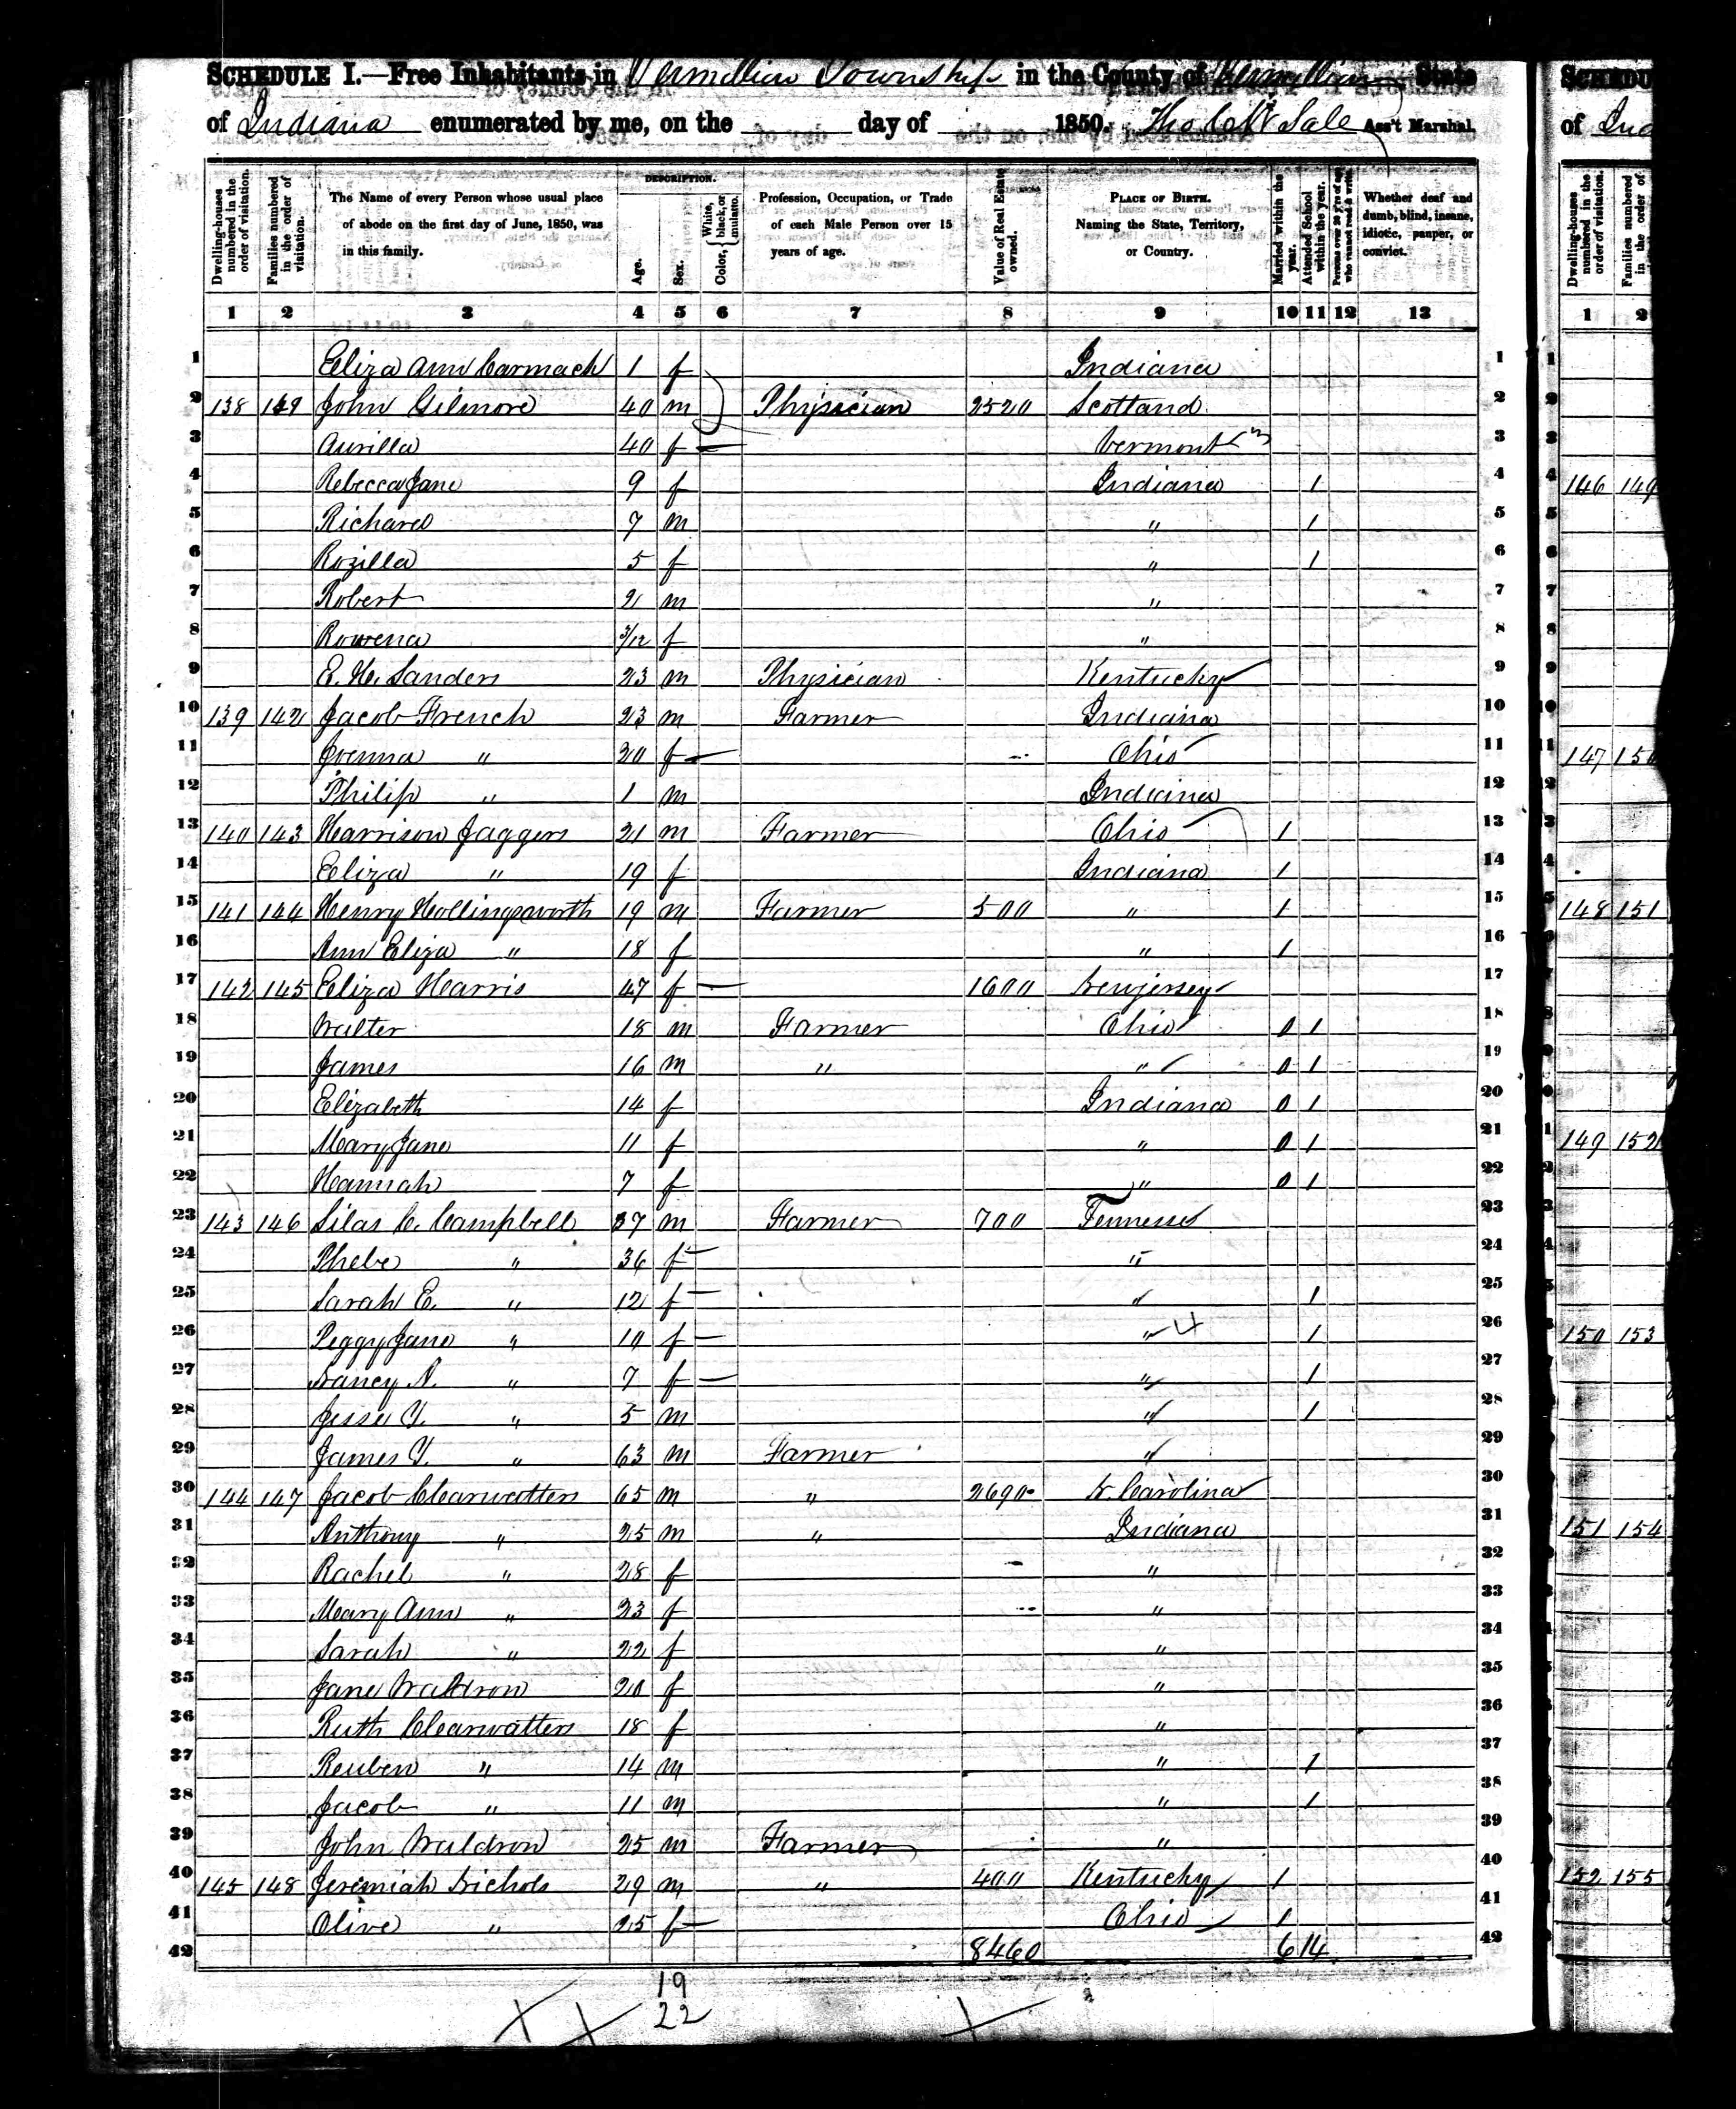 SCHEDULE I.—Free Inhabitants in Vermillion Township in the County of Vermillion State
of Indiana enumerated by me, on the day of 1850. Sale Ass't Marshal.
Dwelling-houses numbered in the order of visitation. Families numbered in the order of visitation. The Name of every Person whose usual place of abode on the first day of June, 1850, was in this family. DESCRIPTION. Age. Sex. Color, White, black, or mulatto. Profession, Occupation, or Trade of each Male Person over 15 years of age. Value of Real Estate owned. PLACE OF BIRTH. Naming the State, Territory, or Country. Married within the year. Attended School within the year. Persons over 20 y'rs of age who cannot read & write. Whether deaf and dumb, blind, insane, idiotic, pauper, or convict.
1 2 3 4 5 6 7 8 9 10 11 12 13
1 Eliza Ann Carmack 1 f Indiana 1
2 138 149 John Gilmore 40 m Physician 2520 Scotland 2
3 Aurilla 40 f Vermont 3
4 Rebecca Jane 9 f Indiana 1 4
5 Richard 7 m " 1 5
6 Rozilla 5 f " 1 6
7 Robert 2 m " 7
8 Rowena 3/12 f " 8
9 E. H. Sanders 23 m Physician Kentucky 9
10 139 142 Jacob French 23 m Farmer Indiana 10
11 " 20 f Ohio 11
12 Philip " 1 m Indiana 12
13 140 143 Harrison Jaggers 21 m Farmer Ohio 1 13
14 Eliza " 19 f Indiana 1 14
15 141 144 Henry Hollingsworth 19 m Farmer 500 " 1 15
16 Ann Eliza " 18 f " 1 16
17 142 145 Eliza Harris 47 f 1600 Newjersey 17
18 Walter 18 m Farmer Ohio 0 1 18
19 James 16 m " " 0 1 19
20 Elizabeth 14 f Indiana 0 1 20
21 Mary Jane 11 f " 0 1 21
22 Hannah 7 f " 0 1 22
23 143 146 Silas C. Campbell 37 m Farmer 700 Tennessee 23
24 Phebe " 36 f " 24
25 Sarah E. " 12 f " 1 25
26 Peggy Jane " 10 f " 4 1 26
27 Nancy A. " 7 f " 1 27
28 Jesse Y. " 5 m " 1 28
29 James Y. " 63 m Farmer " 29
30 144 147 Jacob Clearwatters 65 m " 2690 N. Carolina 30
31 Anthony " 25 m " Indiana 31
32 Rachel " 28 f " 32
33 Mary Ann " 23 f " 33
34 Sarah " 22 f " 34
35 Jane Waldron 20 f " 35
36 Ruth Clearwatters 18 f " 36
37 Reuben " 14 m " 1 37
38 Jacob " 11 m " 1 38
39 John Waldron 25 m Farmer " 39
40 145 148 Jeremiah Nichols 29 m " 400 Kentucky 1 40
41 Olive " 25 f Ohio 1 41
42 8460 6 14 42
19
22
SCHEDU
of Ind
Dwelling-houses numbered in the order of visitation. Families numbered in the order of
1 2
146 149
147 150
148 151
149 152
150 153
151 154
152 155